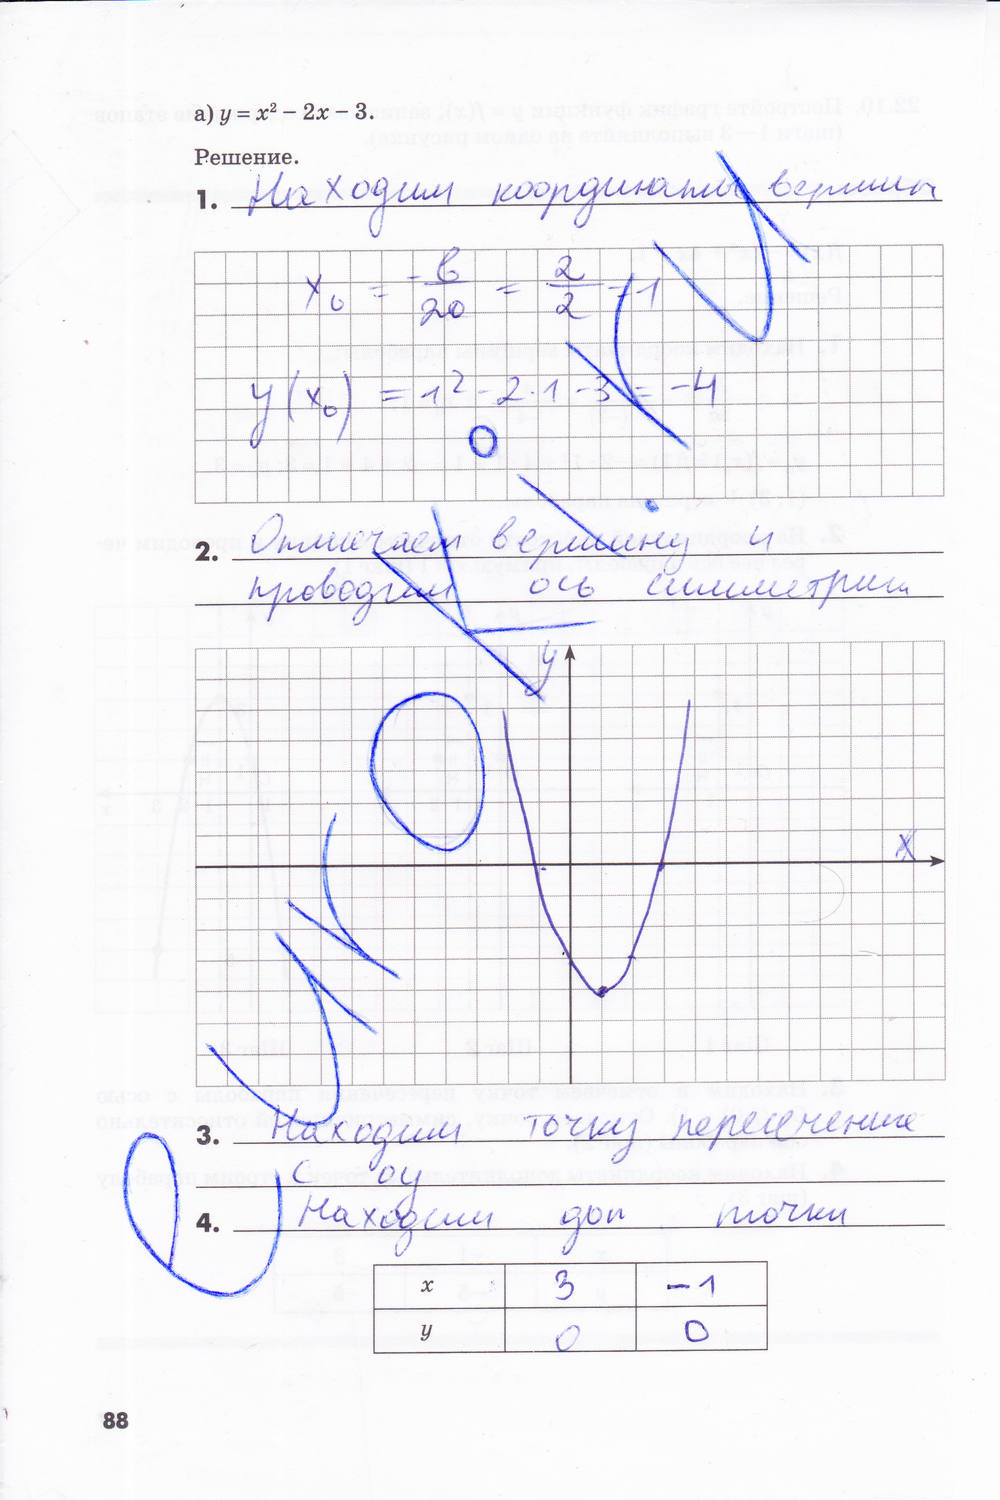 а) y = x² − 2x − 3.
Решение.
1. Находим координаты вершины
x₀ = -b/2a = 2/2 = 1
y(x₀) = 1² - 2·1 - 3 = -4
2. Отмечаем вершину и
проводим ось симметрии
y
x
3. Находим точку пересечения
с оу
4. Находим доп точки
x 3 -1
y 0 0
88